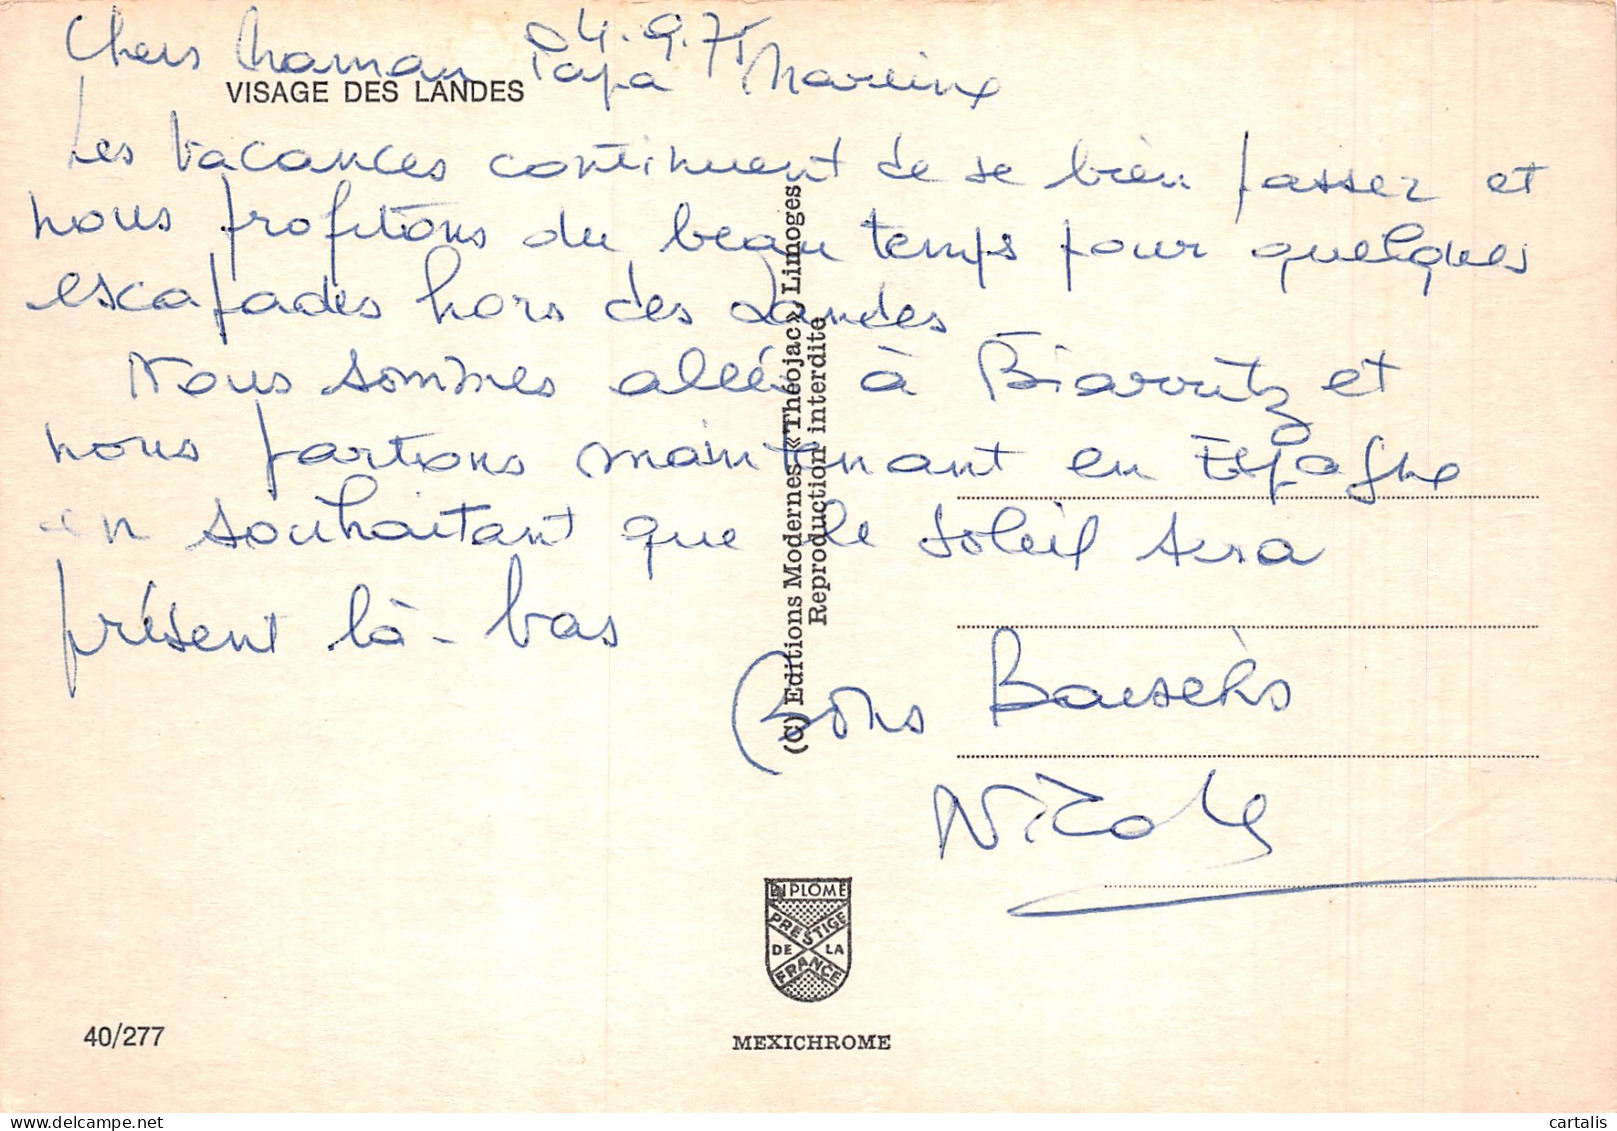 04.9.75
Chers Maman Papa Martine
VISAGE DES LANDES
Les vacances continuent de se bien passer et
nous profitons du beau temps pour quelques
escapades hors des Landes
Nous sommes allés à Biarritz et
nous partions maintenant en Espagne
en souhaitant que le soleil sera
présent là-bas
Bons Baisers
Nicole
(C) Editions Modernes «Théojac», Limoges
Reproduction interdite
DIPLOME
PRESTIGE
DE LA
FRANCE
40/277
MEXICHROME
www.delcampe.net
cartalis